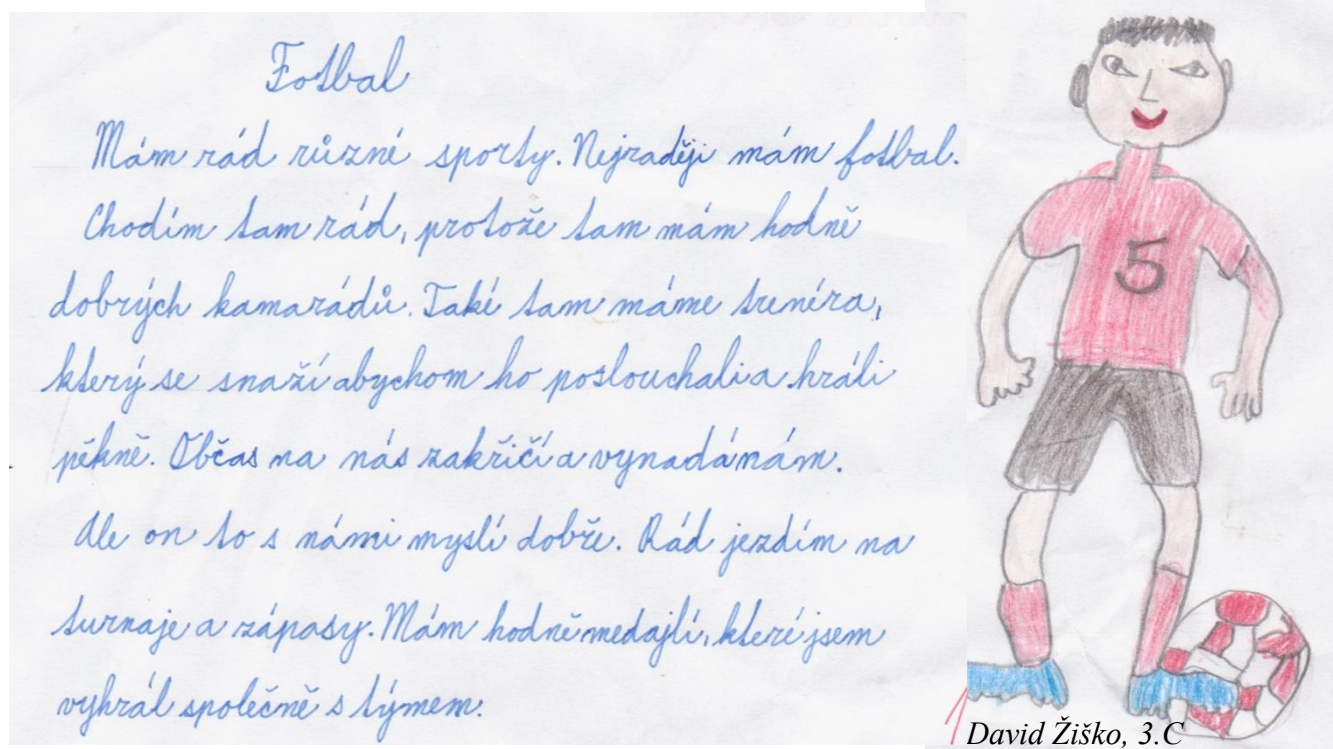 Fotbal
Mám rád různé sporty. Nejraději mám fotbal.
Chodím tam rád, protože tam mám hodně
dobrých kamarádů. Také tam máme trenéra,
který se snaží abychom ho poslouchali a hráli
pěkně. Občas na nás zakřičí a vynadá nám.
Ale on to s námi myslí dobře. Rád jezdím na
turnaje a zápasy. Mám hodně medajlí, které jsem
vyhrál společně s týmem.
5
David Žiško, 3.C